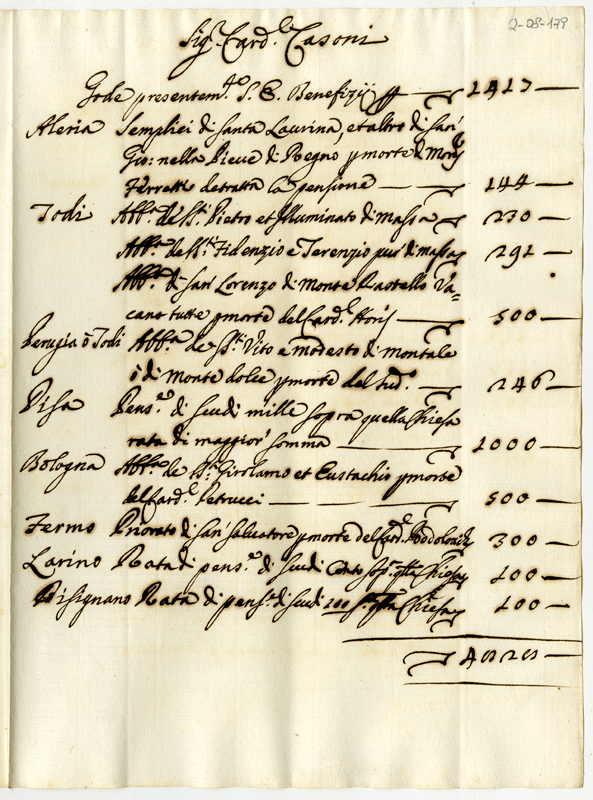 2-08-179
Sig.r Card.l Casoni
Gode presentem.te S. E. Benefizij ff — 1417 —
Aleria Semplici di Santa Laurina, et altro di San
Gio: nella Pieve di Regno p morte di Mons.r
Ferretti detratta la pensione — 144 —
Todi Abb.a de SS.ti Pietro et Illuminato di Massa — 230 —
Abb.a de SS.ti Fidenzio e Terenzio pur di Massa — 291 —
Abb.a di San Lorenzo di Monte Castello Va=
cano tutte p morte del Card.l — 500 —
Perugia ò Todi Abb.a de SS.ti Vito e Modesto di Montale
ò di Monte dolce p morte del sud.o — 246 —
Pisa Pens.e di scudi mille sopra quella Chiesa
rata di maggior somma — 1000 —
Bologna Abb.a de SS.ti Girolamo et Eustachio p morte
del Card.l Petrucci — 500 —
Fermo Priorato di San Salvatore p morte del Card.l — 300 —
Larino Rata di pens.e di scudi Cento sop.a q.lla Chiesa — 100 —
Bisignano Rata di pens.e di scudi 200 s.a q.lla Chiesa — 100 —